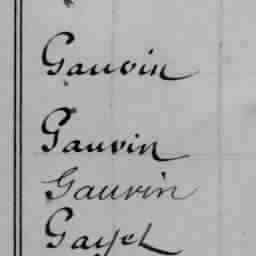 Gauvin
Gauvin
Gauvin
Gayet